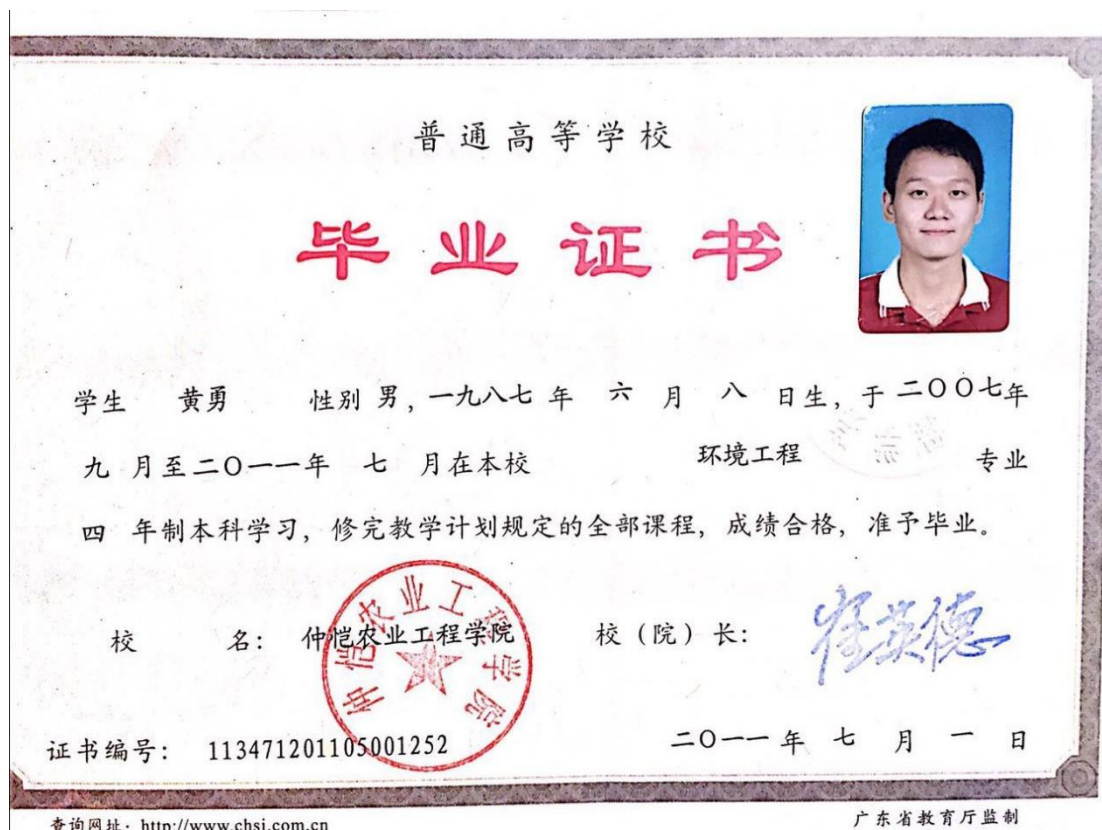 普通高等学校
毕业证书
学生 黄勇 性别 男，一九八七 年 六 月 八 日生，于 二〇〇七年
九 月至二〇一一年 七 月在本校 环境工程 专业
四 年制本科学习，修完教学计划规定的全部课程，成绩合格，准予毕业。
仲恺农业工程学院
校 名： 仲恺农业工程学院 校（院）长： 崔英德
证书编号： 113471201105001252 二〇一一 年 七 月 一 日
查询网址：http://www.chsi.com.cn 广东省教育厅监制